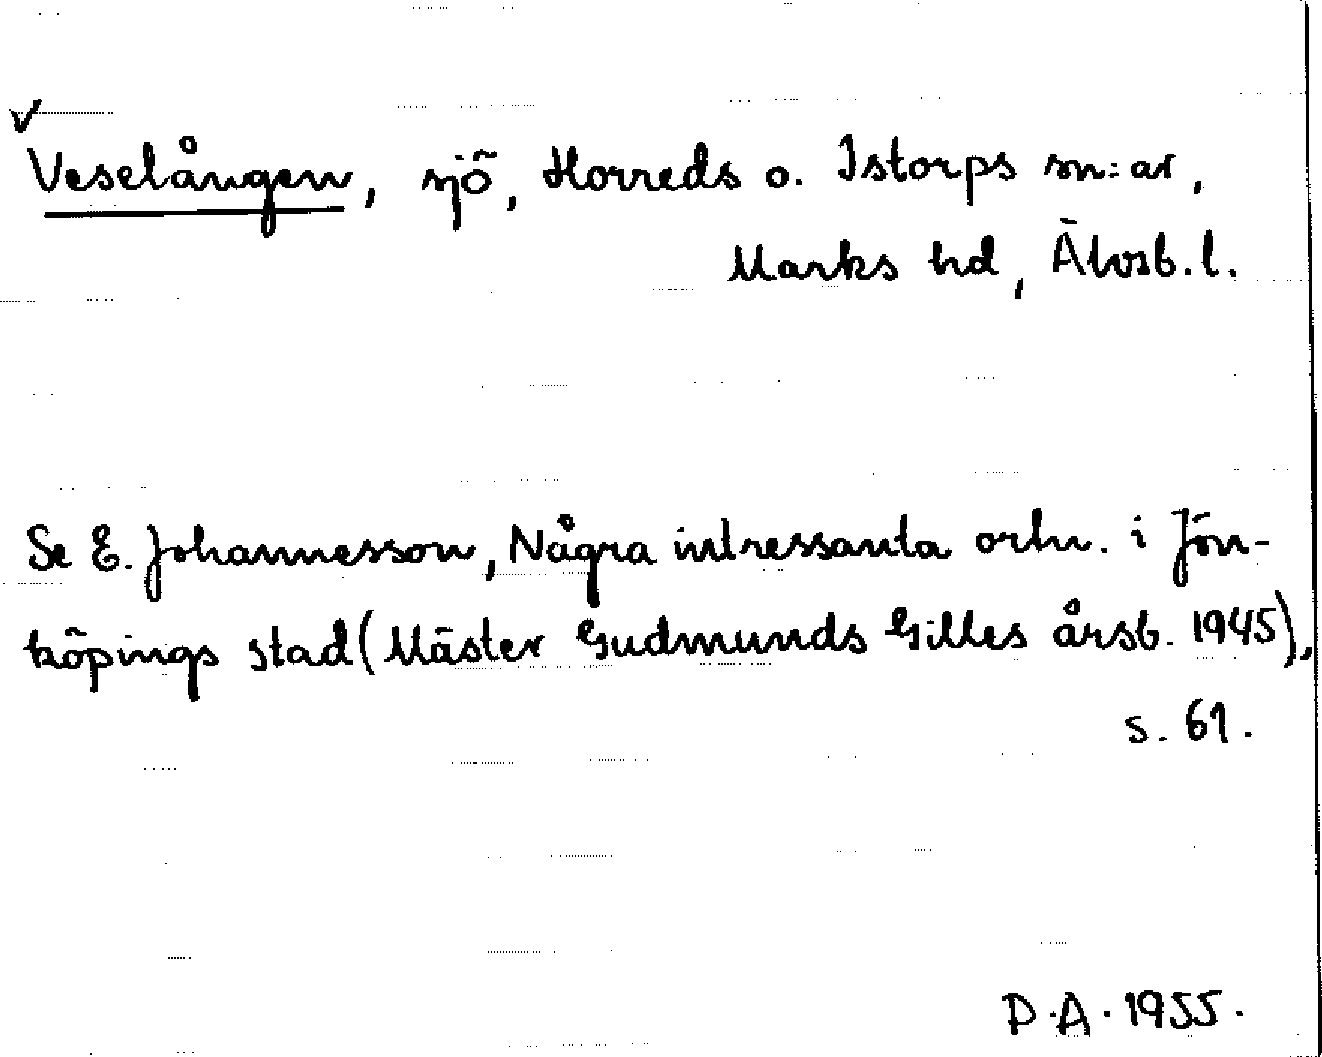 ✓
Veselången, sjö, Horreds o. Istorps sn:ar,
Marks hd, Älvsb. l.
Se E. Johannesson, Några intressanta ortn. i Jön-
köpings stad (Mäster Gudmunds Gilles årsb. 1945),
s. 61.
P.A. 1955.